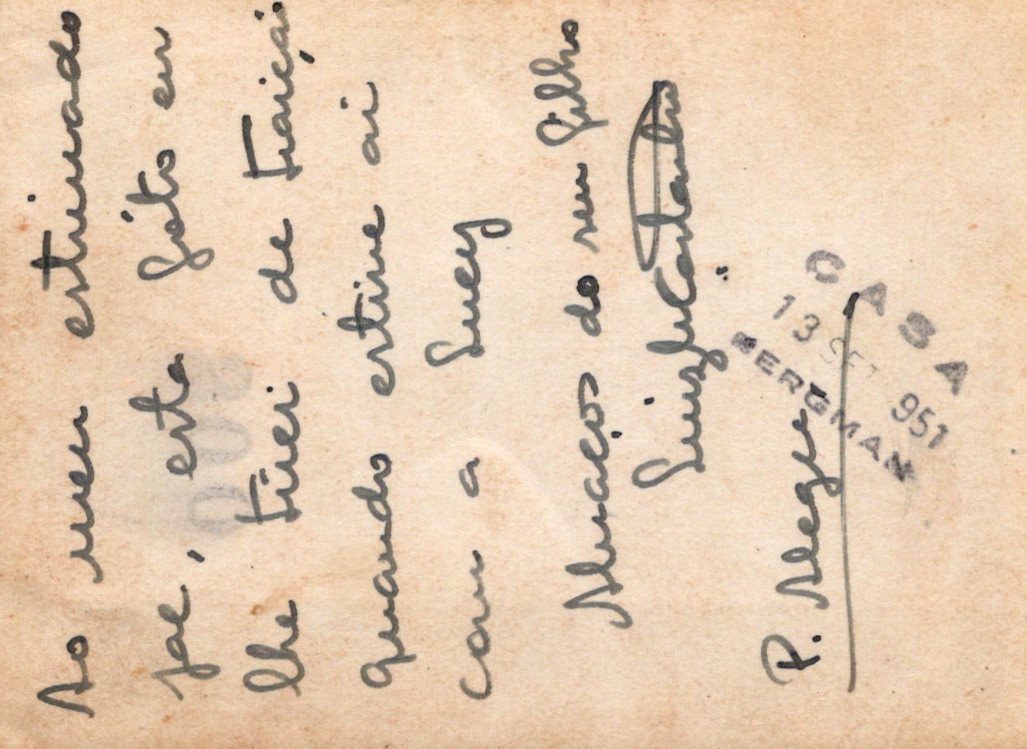 Ao meu estimado
pae, esta fóto eu
lhe tirei de traição
quando estive ai
com a Lucy
Abraços do seu filho
Luiz
P. Alegre
CASA
13 SET 951
BERGMAN